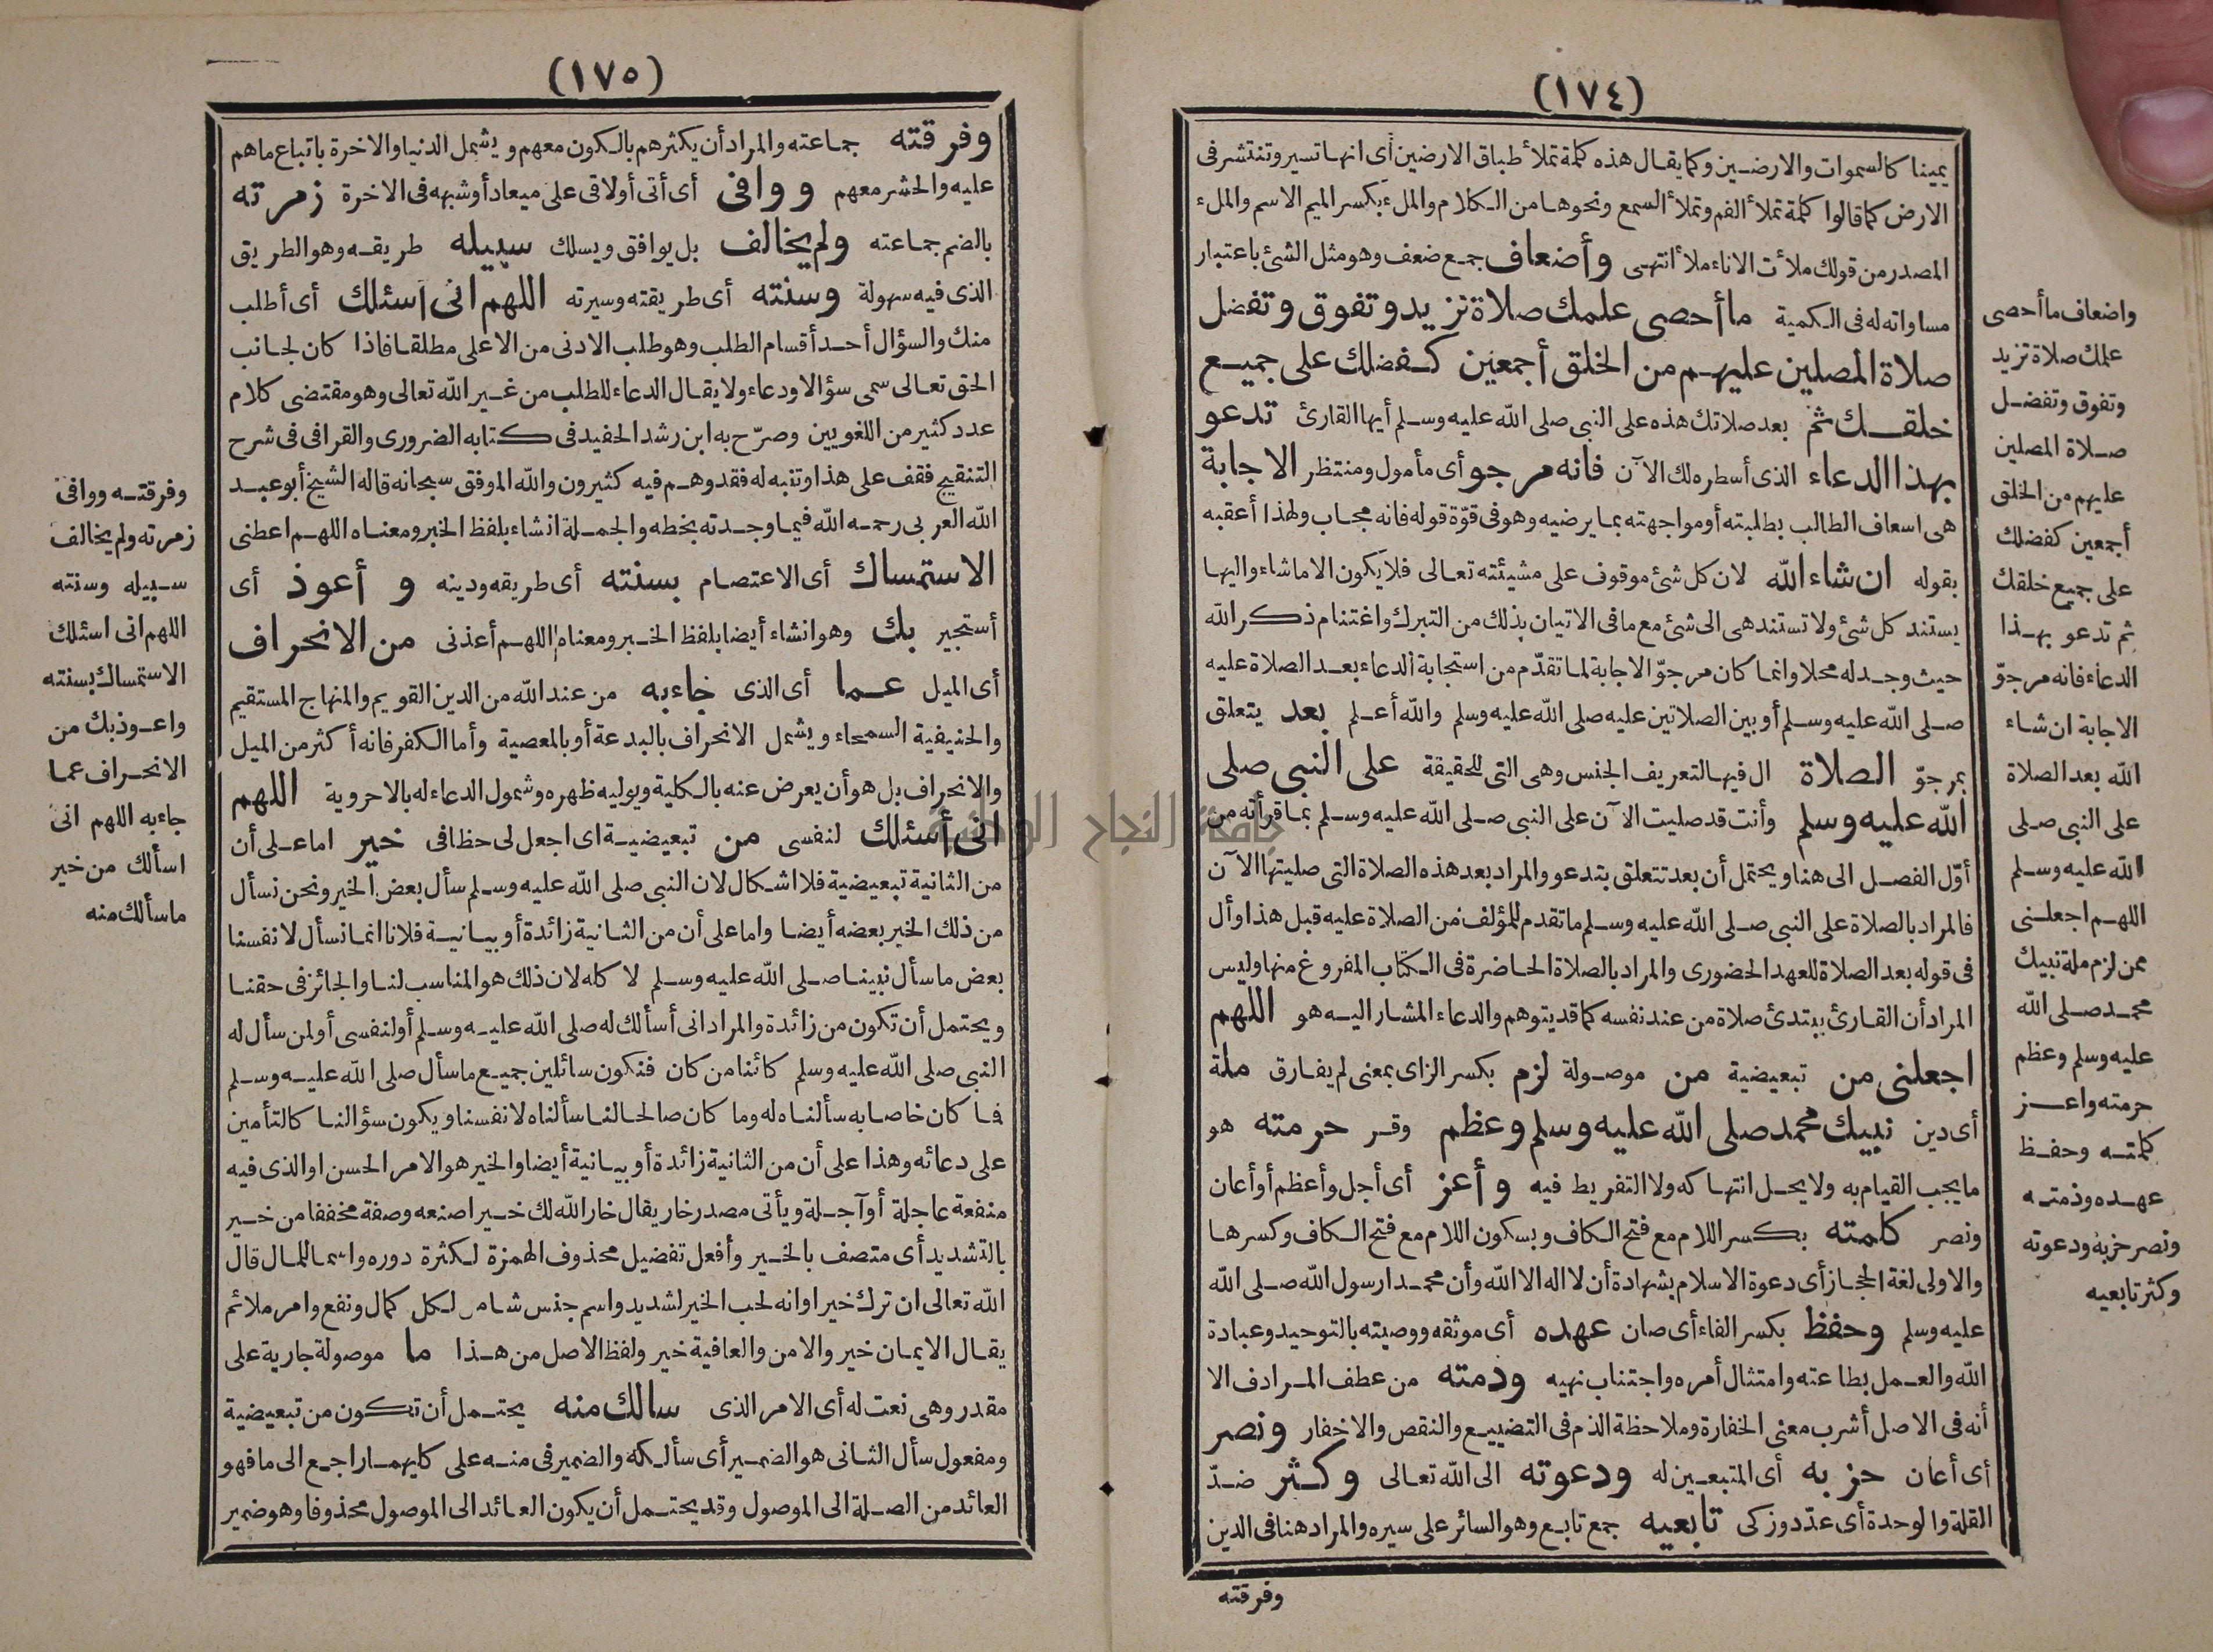 (١٧٤)
يمينا كالسموات والارضين وكما يقال هذه كلمة تملأ طباق الارضين أى انها تسير وتنتشر فى
الارض كما قالوا كلمة تملأ الفم وتملأ السمع ونحوها من الكلام والملء بكسر الميم الاسم والملء
المصدر من قولك ملأت الاناء ملأ انتهى وأضعاف جمع ضعف وهو مثل الشئ باعتبار
مساواته له فى الكمية ما أحصى علمك صلاة تزيد وتفوق وتفضل
صلاة المصلين عليهم من الخلق أجمعين كفضلك على جميع
خلقك ثم بعد صلاتك هذه على النبى صلى الله عليه وسلم أيها القارئ تدعو
بهذا الدعاء الذى أسطره لك الآن فانه مرجو أى مأمول ومنتظر الاجابة
هى اسعاف الطالب بطلبته أو مواجهته بما يرضيه وهو فى قوّة قوله فانه مجاب ولهذا أعقبه
بقوله ان شاء الله لان كل شئ موقوف على مشيئته تعالى فلا يكون الا ما شاء واليها
يستند كل شئ ولا تستند هى الى شئ مع ما فى الاتيان بذلك من التبرك واغتنام ذكر الله
حيث وجد له محلا وانما كان مرجوّ الاجابة لما تقدّم من استجابة الدعاء بعد الصلاة عليه
صلى الله عليه وسلم أو بين الصلاتين عليه صلى الله عليه وسلم والله أعلم بعد يتعلق
بمرجوّ الصلاة ال فيها لتعريف الجنس وهى التى للحقيقة على النبى صلى
الله عليه وسلم وأنت قد صليت الآن على النبى صلى الله عليه وسلم بما قرأته من
أوّل الفصل الى هنا ويحتمل أن بعد تتعلق بتدعو والمراد بعد هذه الصلاة التى صليتها الآن
فالمراد بالصلاة على النبى صلى الله عليه وسلم ما تقدم للمؤلف من الصلاة عليه قبل هذا وأل
فى قوله بعد الصلاة للعهد الحضورى والمراد بالصلاة الحاضرة فى الكتاب المفروغ منها وليس
المراد أن القارئ يبتدئ صلاة من عند نفسه كما قد يتوهم والدعاء المشار اليه هو اللهم
اجعلنى من تبعيضية من موصولة لزم بكسر الزاى بمعنى لم يفارق ملة
أى دين نبيك محمد صلى الله عليه وسلم وعظم وقر حرمته هو
ما يجب القيام به ولا يحل انتهاكه ولا التفريط فيه وأعز أى أجل وأعظم أو أعان
ونصر كلمته بكسر اللام مع فتح الكاف وبسكون اللام مع فتح الكاف وكسرها
والاولى لغة الحجاز أى دعوة الاسلام بشهادة أن لا اله الا الله وأن محمدا رسول الله صلى الله
عليه وسلم وحفظ بكسر الفاء أى صان عهده أى موثقه ووصيته بالتوحيد وعبادة
الله والعمل بطاعته وامتثال أمره واجتناب نهيه وذمته من عطف المرادف الا
أنه فى الاصل أشرب معنى الخفارة وملاحظة الذم فى التضييع والنقص والاخفار ونصر
أى أعان حزبه أى المتبعين له ودعوته الى الله تعالى وكثر ضدّ
القلة والوحدة أى عدّد وزكى تابعيه جمع تابع وهو السائر على سيره والمراد هنا فى الدين
وفرقته
واضعاف ما أحصى
علمك صلاة تزيد
وتفوق وتفضل
صلاة المصلين
عليهم من الخلق
أجمعين كفضلك
على جميع خلقك
ثم تدعو بهذا
الدعاء فانه مرجوّ
الاجابة ان شاء
الله بعد الصلاة
على النبى صلى
الله عليه وسلم
اللهم اجعلنى
ممن لزم ملة نبيك
محمد صلى الله
عليه وسلم وعظم
حرمته واعز
كلمته وحفظ
عهده وذمته
ونصر حزبه ودعوته
وكثر تابعيه
(١٧٥)
وفرقته جماعته والمراد أن يكثرهم بالكون معهم ويشمل الدنيا والاخرة باتباع ما هم
عليه والحشر معهم ووافى أى أتى أو لاقى على ميعاد أو شبهه فى الاخرة زمرته
بالضم جماعته ولم يخالف بل يوافق ويسلك سبيله طريقه وهو الطريق
الذى فيه سهولة وسنته أى طريقته وسيرته اللهم انى أسئلك أى أطلب
منك والسؤال أحد أقسام الطلب وهو طلب الادنى من الاعلى مطلقا فاذا كان لجانب
الحق تعالى سمى سؤالا ودعاء ولا يقال الدعاء للطلب من غير الله تعالى وهو مقتضى كلام
عدد كثير من اللغويين وصرّح به ابن رشد الحفيد فى كتابه الضرورى والقرافى فى شرح
التنقيح فقف على هذا وتنبه له فقد وهم فيه كثيرون والله الموفق سبحانه قاله الشيخ أبو عبد
الله العربى رحمه الله فيما وجدته بخطه والجملة انشاء بلفظ الخبر ومعناه اللهم اعطنى
الاستمساك أى الاعتصام بسنته أى طريقه ودينه وأعوذ أى
أستجير بك وهو انشاء أيضا بلفظ الخبر ومعناه اللهم أعذنى من الانحراف
أى الميل عما أى الذى جاء به من عند الله من الدين القويم والمنهاج المستقيم
والحنيفية السمحاء ويشمل الانحراف بالبدعة أو بالمعصية وأما الكفر فانه أكثر من الميل
والانحراف بل هو أن يعرض عنه بالكلية ويوليه ظهره وشمول الدعاء له بالاحروية اللهم
انى أسئلك لنفسى من تبعيضية اى اجعل لى حظا فى خير اما على أن
من الثانية تبعيضية فلا اشكال لان النبى صلى الله عليه وسلم سأل بعض الخير ونحن نسأل
من ذلك الخير بعضه أيضا واما على أن من الثانية زائدة أو بيانية فلانا انما نسأل لانفسنا
بعض ما سأل نبينا صلى الله عليه وسلم لا كله لان ذلك هو المناسب لنا والجائز فى حقنا
ويحتمل أن تكون من زائدة والمراد انى أسألك له صلى الله عليه وسلم أو لنفسى أو لمن سأل له
النبى صلى الله عليه وسلم كائنا من كان فنكون سائلين جميع ما سأل صلى الله عليه وسلم
فما كان خاصا به سألناه له وما كان صالحا لنا سألناه لانفسنا ويكون سؤالنا كالتأمين
على دعائه وهذا على أن من الثانية زائدة أو بيانية أيضا والخير هو الامر الحسن او الذى فيه
منفعة عاجلة أو آجلة ويأتى مصدر خار يقال خار الله لك خيرا صنعه وصفة مخففا من خير
بالتشديد أى متصف بالخير وأفعل تفضيل محذوف الهمزة لكثرة دوره واسما للمال قال
الله تعالى ان ترك خيرا وانه لحب الخير لشديد واسم جنس شامل لكل كمال ونفع وامر ملائم
يقال الايمان خير والامن والعافية خير ولفظ الاصل من هذا ما موصولة جارية على
مقدر وهى نعت له أى الامر الذى سالك منه يحتمل أن تكون من تبعيضية
ومفعول سأل الثانى هو الضمير أى سألكه والضمير فى منه على كليهما راجع الى ما فهو
العائد من الصلة الى الموصول وقد يحتمل أن يكون العائد الى الموصول محذوفا وهو ضمير
وفرقته ووافى
زمرته ولم يخالف
سبيله وسنته
اللهم انى اسئلك
الاستمساك بسنته
واعوذ بك من
الانحراف عما
جاء به اللهم انى
اسألك من خير
ما سألك منه
جامعة النجاح الوطنية